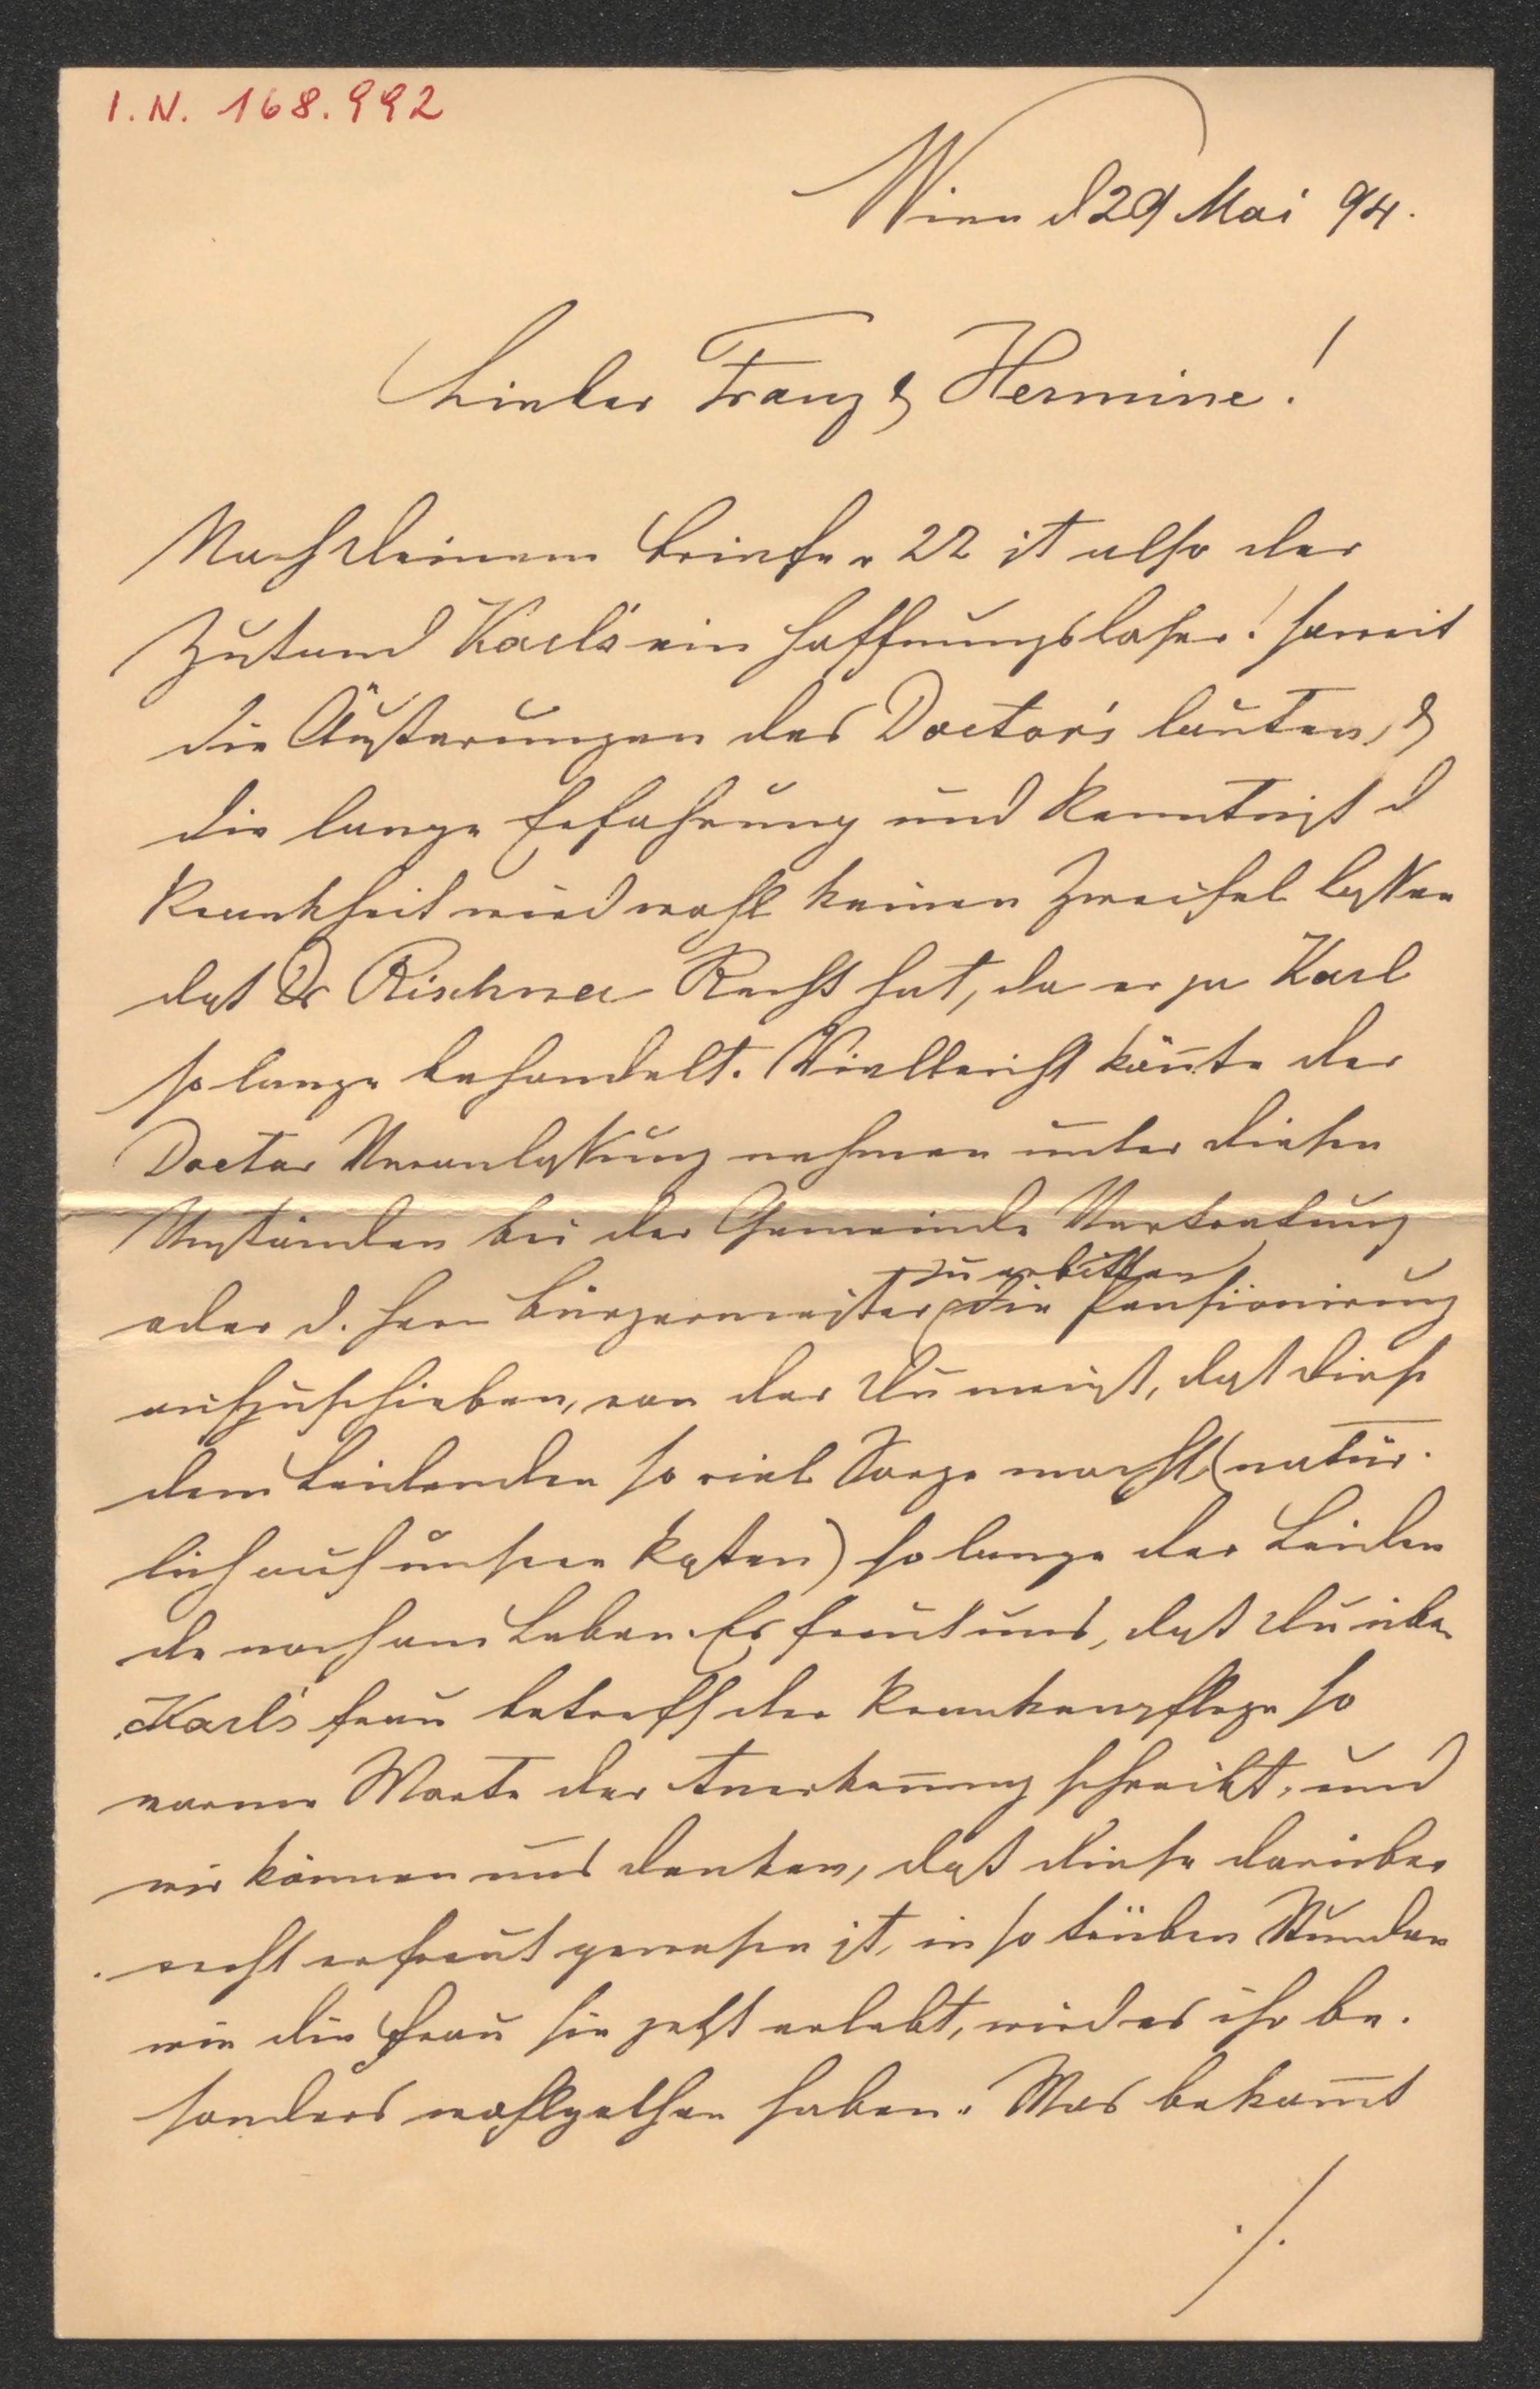 I.N. 168.992
Wien d 29 Mai 94.
Lieber Franz & Hermine!
Nach Deinem Briefe v 22 ist also der
Zustand Karl's ein hoffnungsloser! soweit
die Äußerungen des Doctor's lauten, &
die lange Erfahrung und Kenntniß d
Krankheit wird wohl keinen Zweifel lassen
daß Dr Rischner Recht hat, da er ja Karl
so lange behandelt. Vielleicht kön̄te der
Doctor Veranlassung nehmen unter diesen
Umständen bei der Gemeinde Vertretung
zu erbitten
oder d. Herr Bürgermeister die Pensionirung
aufzuschieben, von der Du meinst, daß diese
dem Leidenden so viel Sorge macht (natür-
lich auf unsere Kosten) so lange der Leiden
de noch am Leben. Es freut uns, daß Du über
Karl's Frau betreff der Krankenpflege so
warme Worte der Anerken̄ung schreibt, und
wir können uns denken, daß diese darüber
recht erfreut gewesen ist, in so trüben Stunden
wie die Frau sie jetzt erlebt, wird es ihr be-
sonders wohlgethan haben. Was bekom̄t
./.